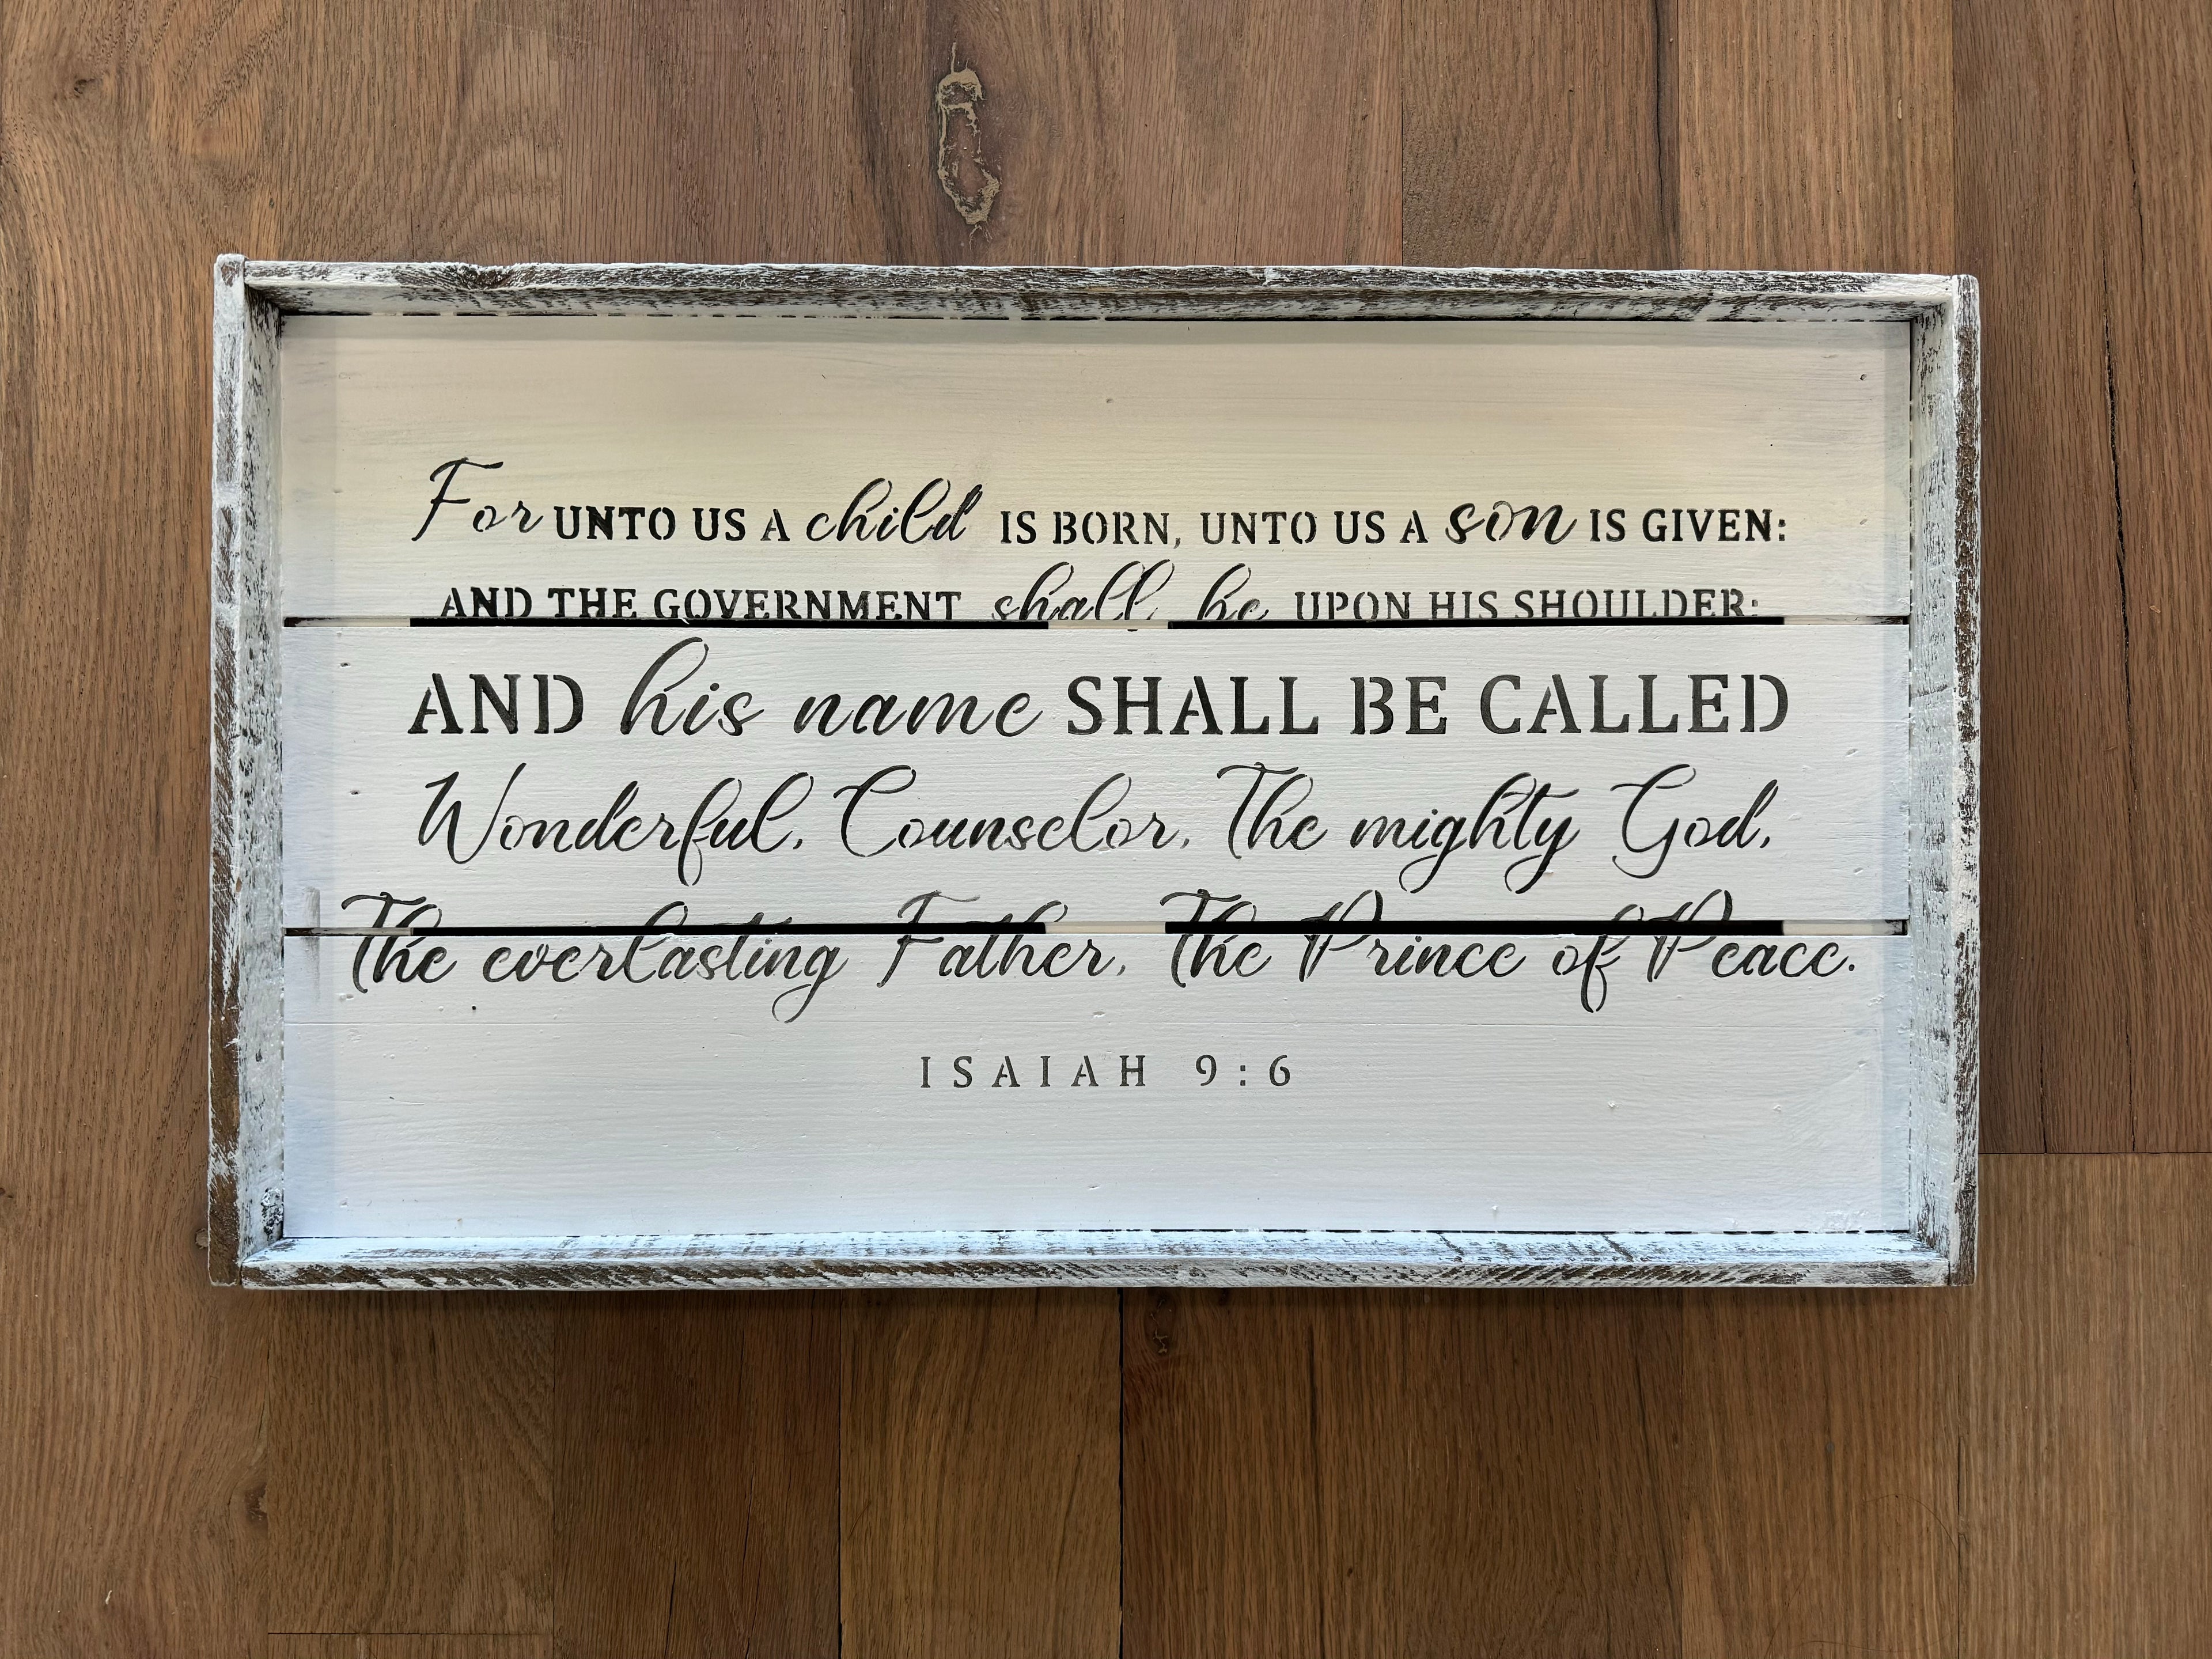 For UNTO US A child IS BORN, UNTO US A son IS GIVEN:
AND THE GOVERNMENT shall be UPON HIS SHOULDER:
AND his name SHALL BE CALLED
Wonderful, Counselor, The mighty God,
The everlasting Father, The Prince of Peace.
ISAIAH 9:6